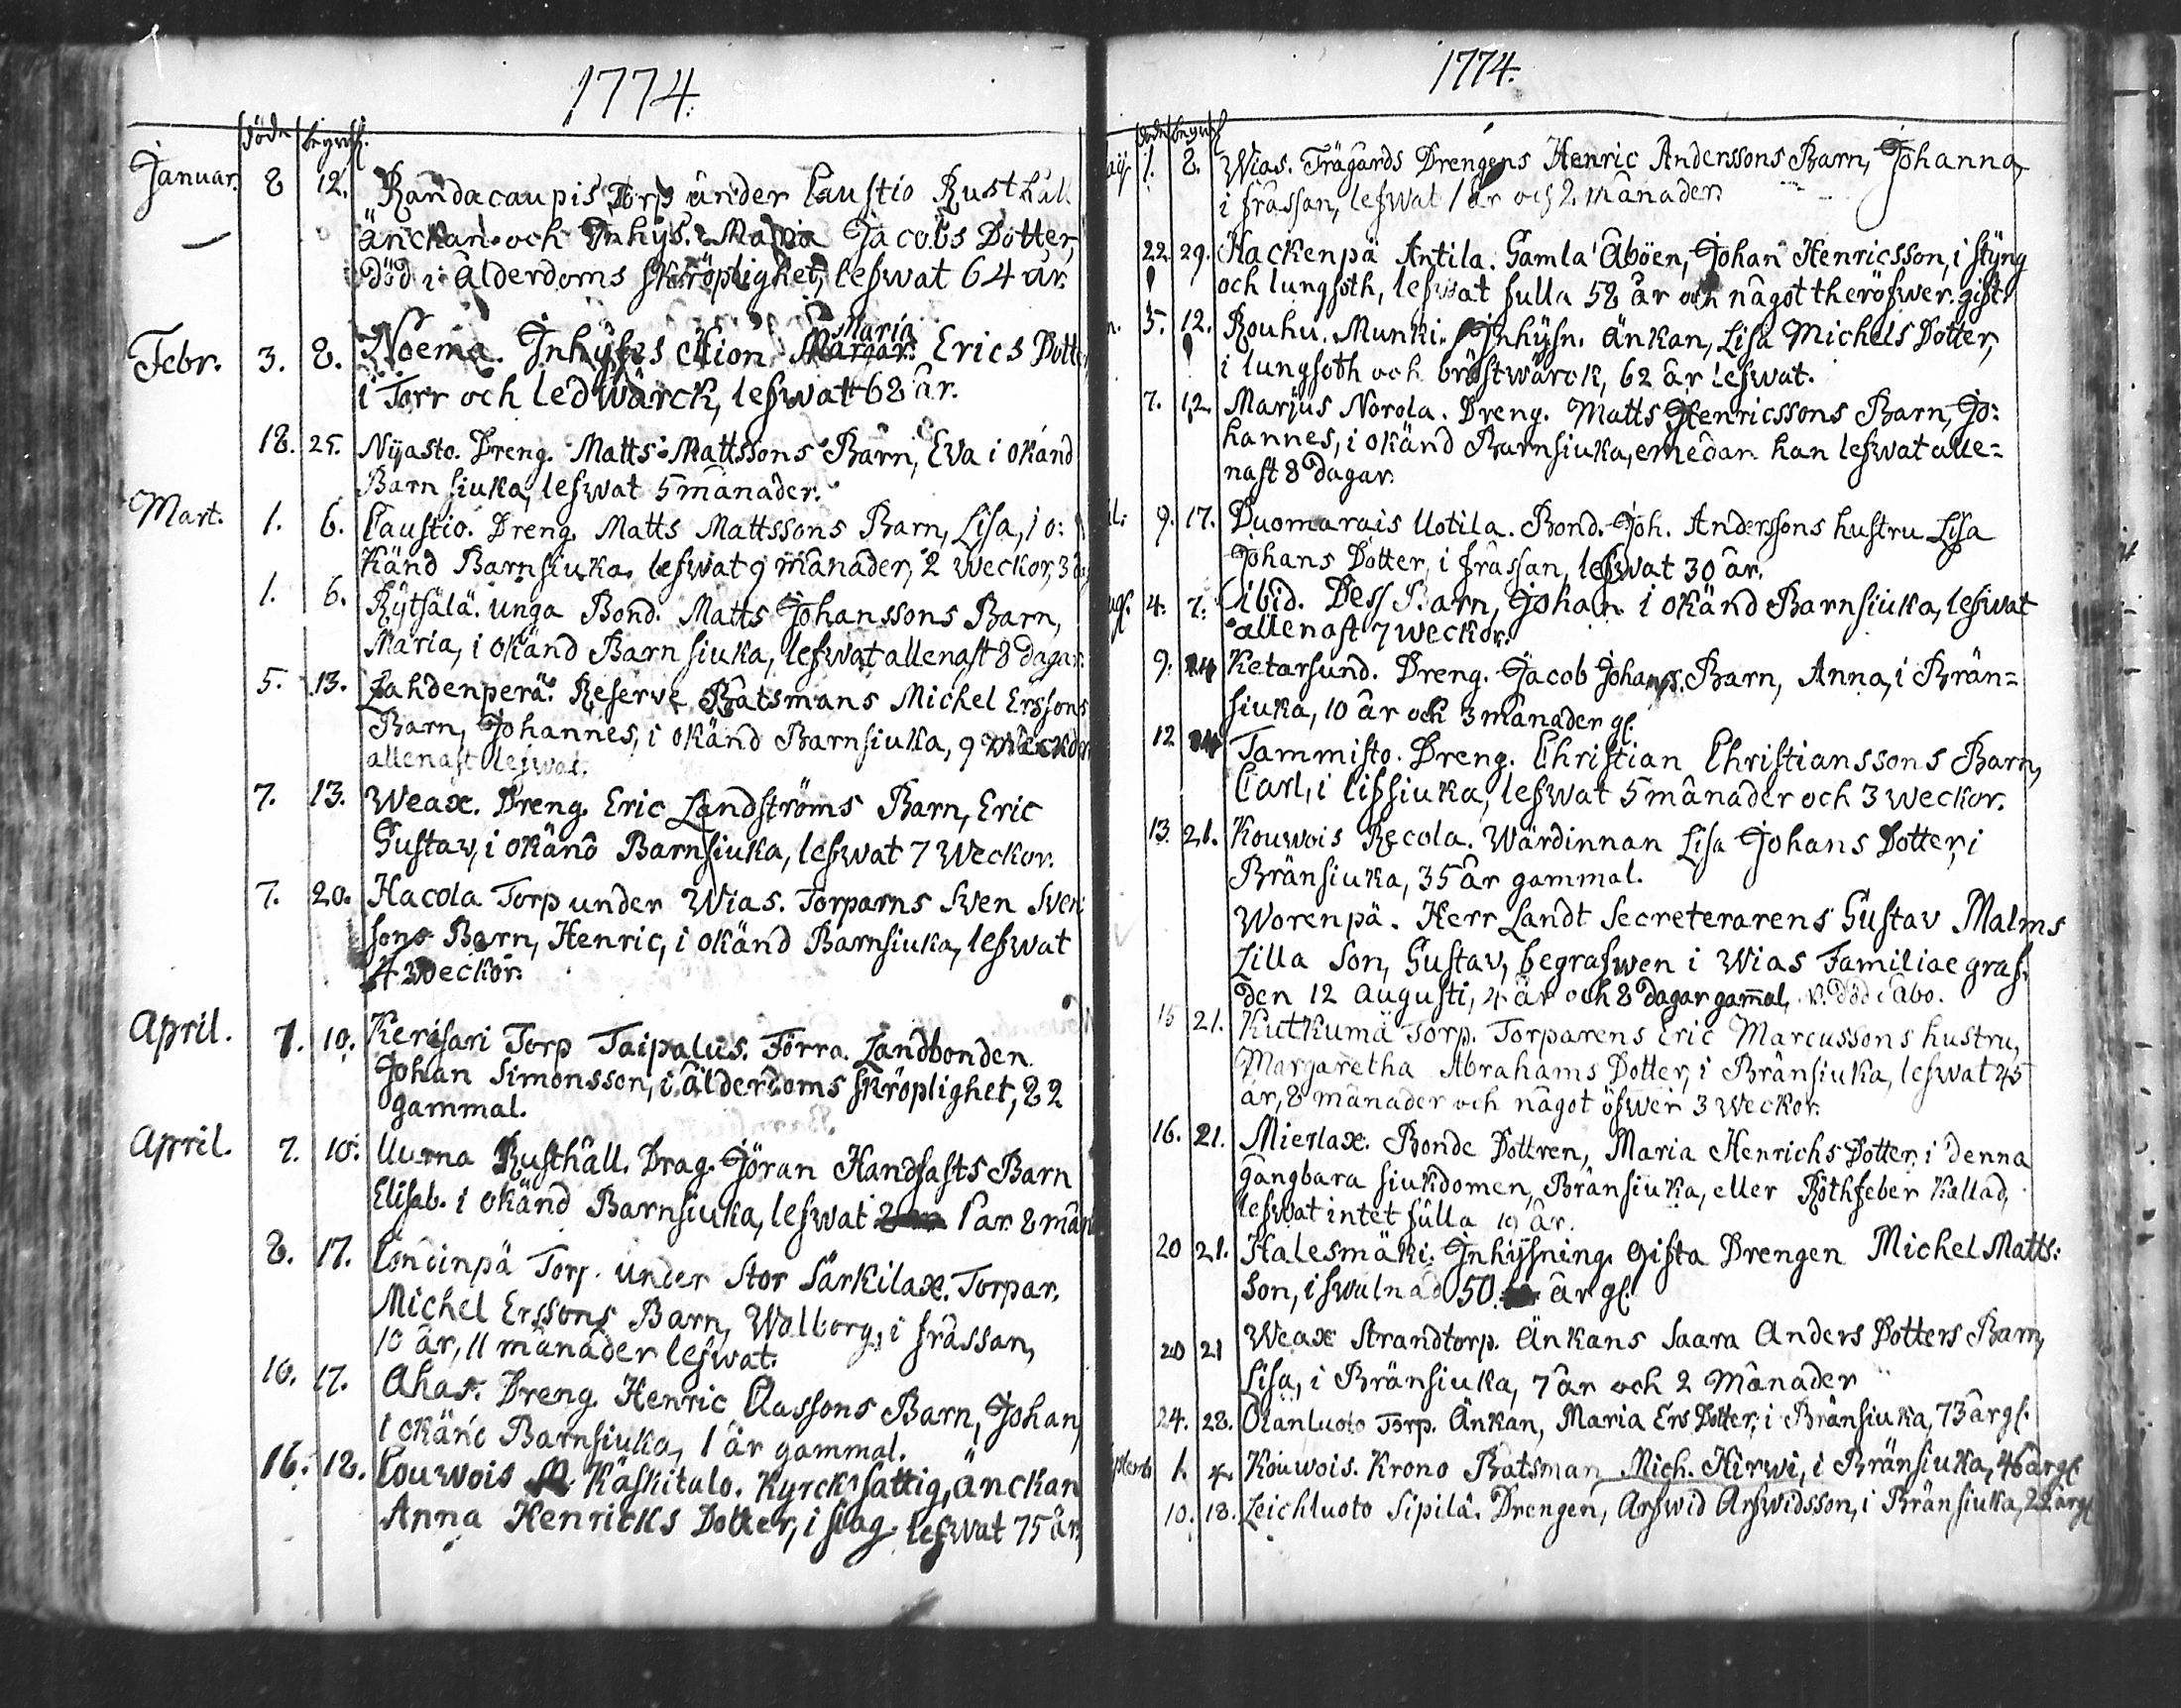 1774.
döde begrafs.
Januar. 8 12. Randacaupis Torp under Caustio Rusthåll
änckan och Inhys. Maria Jacobs Dotter,
död i ålderdoms skröplighet, lefwat 64 år.
Febr. 3. 8. Noema. Inhyses Maria Erics Dotter
i Torr och ledwärck, lefwat 68 år.
18. 25. Nyasto. Dreng. Matts Mattssons Barn, Eva i okänd
Barnsiuka, lefwat 5 månader.
Mart. 1. 6. Caustio. Dreng. Matts Mattssons Barn, Lisa, i o:
känd Barnsiuka. lefwat 9 månader, 2 weckor, 3
1. 6. Rytsälä. unga Bond. Matts Johanssons Barn,
Maria, i okänd Barnsiuka, lefwat allenast 8 dagar.
5. 13. Lahdenperä. Reserve Båtsmans Michel Erssons
Barn, Johannes, i okänd Barnsiuka, 9 weckor
allenast lefwat.
7. 13. Weax. Dreng. Eric Landströms Barn, Eric
Gustav, i okänd Barnsiuka, lefwat 7 Weckor.
7. 20. Hacola Torp under Wias. Torparns Sven Sven
sons Barn, Henric, i okänd Barnsiuka, lefwat
4 weckor.
April. 7. 10. Kerisari Torp Taipalus. Förra Landbonden
Johan Simonsson, i ålderdoms skröplighet, 82
gammal.
April. 7. 10. Uurna Rusthåll. Drag. Jöran Handfasts Barn
Elisab. i okänd Barnsiuka, lefwat 1 år 8 mån
8. 17. Londinpä Torp. under Stor Särkilax. Torpar.
Michel Erssons Barn, Walborg, i frässan,
10 år, 11 månader lefwat.
10. 17. Ahas. Dreng. Henric Classons Barn, Johan,
i okänd Barnsiuka, 1 år gammal.
16. 18. Couwois Käskitalo. Kyrckfattig, änckan
Anna Henricks Dotter, i slag lefwat 75 år
1774.
döde begrafs
aij 1. 8. Wias. Trägårds Drengens Henric Anderssons Barn, Johanna,
i frässan, lefwat 1 år och 2 månader.
22. 29. Hackenpä Antila. Gamla Åboen, Johan Henricsson, i styng
och lungsoth, lefwat fulla 58 år och något theröfwer. gift.
n. 5. 12. Rouhu. Munki. Inhysn. änkan, Lisa Michels Dotter,
i lungsoth och bröstwärck, 62 år lefwat.
7. 12. Marjus Norola. Dreng. Matts Henricssons Barn, Jo:
hannes, i okänd Barnsiuka, emedan han lefwat alle=
nast 8 dagar.
l: 9. 17. Duomarais Uotila. Bond. Joh. Anderssons hustru Lisa
Johans Dotter, i frässan, lefwat 30 år.
ugs. 4. 7. ibid. Dess Barn, Johan i okänd Barnsiuka, lefwat
allenast 7 weckor.
9. 14 Ketarsund. Dreng. Jacob Johans. Barn, Anna, i Brän=
siuka, 10 år och 3 månader gl.
12 14 Tammisto. Dreng. Christian Christianssons Barn,
Carl, i lissiuka, lefwat 5 månader och 3 weckor.
13. 21. Kouwois Recola. Wärdinnan Lisa Johans Dotter, i
Bränsiuka, 35 år gammal.
Worenpä. Herr Landt Secreterarens Gustav Malms
Lilla Son, Gustav, begrafwen i Wias Familiae graf.
den 12 Augusti, 4 år och 8 dagar gammal, död i Åbo.
15 21. Kutkumä Torp. Torparens Eric Marcussons hustru,
Margaretha Abrahams Dotter, i Bränsiuka, lefwat 45
år, 8 månader och något öfwer 3 Weckor.
16. 21. Mierlax. Bonde Dottren, Maria Henrichs Dotter, i denna
gångbara siukdomen, Bränsiuka, eller Röthfeber kallad,
lefwat intet fulla 19 år.
20 21. Halesmäki. Inhysning. Gifta Drengen Michel Matts:
son, i swulnad 50. år gl.
20 21 Weax Strandtorp. Änkans Saara Anders Dotters Barn,
Lisa, i Bränsiuka, 7 år och 2 Månader
24. 28. Olänluoto Torp. Änkan, Maria Ers Dotter, i Bränsiuka, 73 år gl.
ptemb 1. 4. Kouwois. Krono Båtsman Mich. Hirwi, i Bränsiuka, 46 år gl.
10. 18. Leichluoto Sipilä. Drengen, Arfwid Arfwidsson, i Bränsiuka, 22 år gl